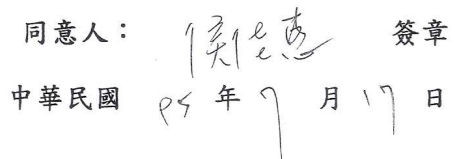 同意人： 簽章
中華民國 95 年 7 月 17 日